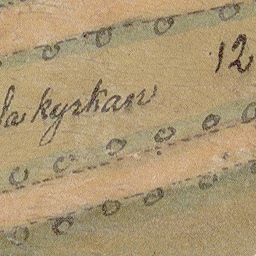 la kyrkan 12